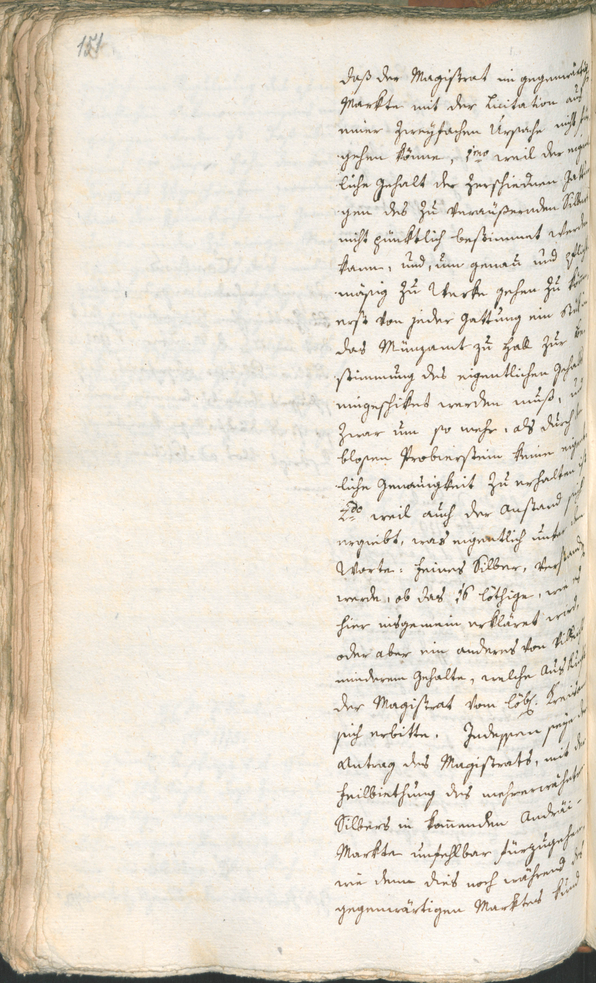 151
daß der Magistrat im gegenwärtig
Markte mit der Licitation aus
einer zweyfachen Ursache nicht für
gehen könne. 1mo weil der eigent
liche Gehalt der verschiednen Gattun
gen des zu veräußernden Silbers
nicht pünktlich bestimmet werden
kann, und, um genau und pflicht
mäsig zu Werke gehen zu können
erst von jeder Gattung ein Stük
das Münzamt zu Hall zur Be
stimmung des eigentlichen Gehalts
eingeschikt werden muß, und
zwar um so mehr, als durch
blosen Probierstein keine eigent
liche Genauigkeit zu erhalten ist
2do weil auch der Anstand sich
ergiebt, was eigentlich unter dem
Worte: feines Silber, verstand
werde, ob das 16 löthige, wie es
hier insgemein erkläret wird,
oder aber ein anderes von
minderem Gehalte, welche Auskunft
der Magistrat vom löbl. Kreisamt
sich erbitte. Indessen seye der
Antrag des Magistrats, mit der
Feilbiethung des mehrerwähnten
Silbers in kommenden Andräi-
Markte unfehlbar fürzugehen,
wie denn dies noch während des
gegenwärtigen Marktes kund